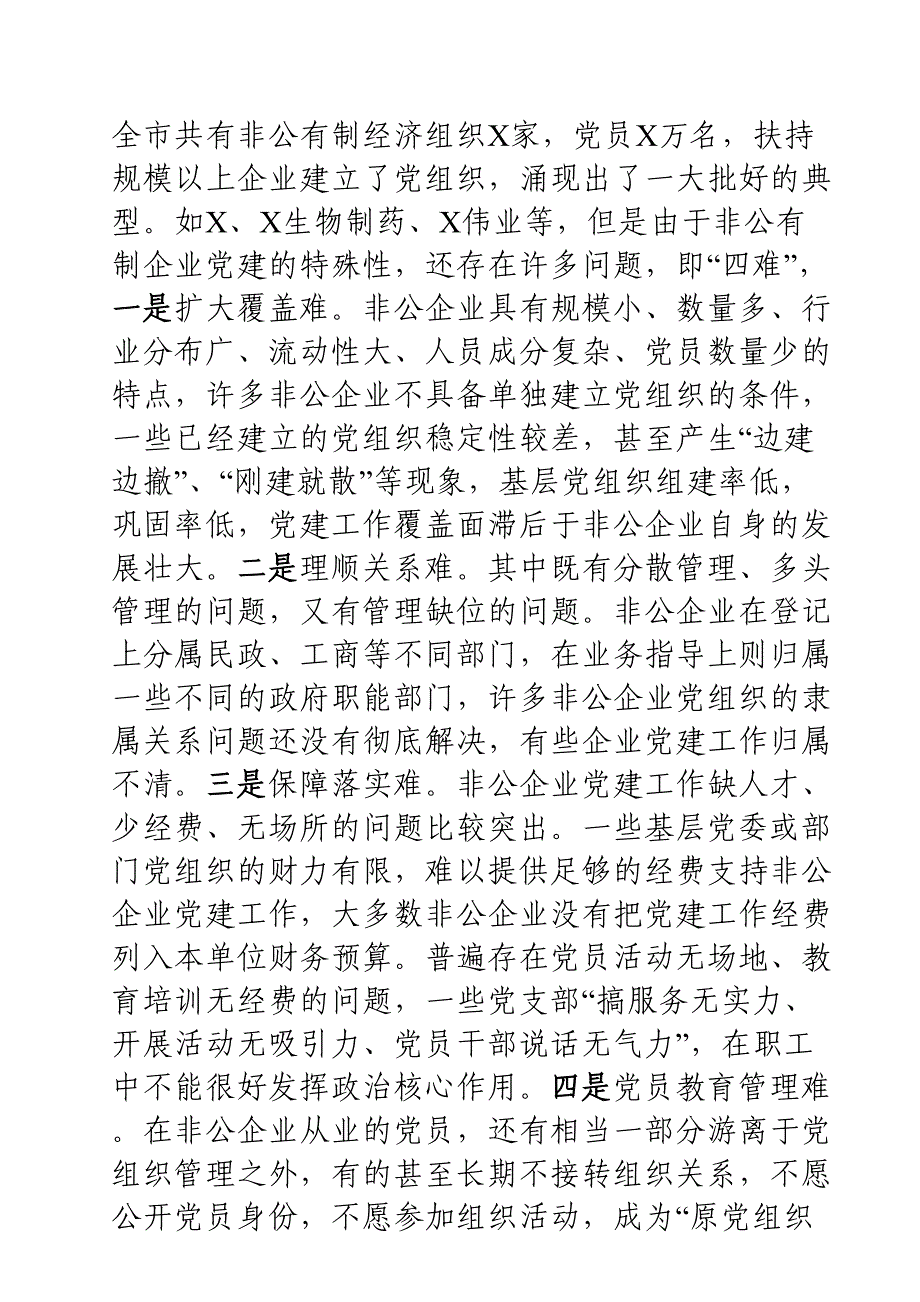 全市共有非公有制经济组织X家，党员X万名，扶持
规模以上企业建立了党组织，涌现出了一大批好的典
型。如X、X生物制药、X伟业等，但是由于非公有
制企业党建的特殊性，还存在许多问题，即“四难”，
一是扩大覆盖难。非公企业具有规模小、数量多、行
业分布广、流动性大、人员成分复杂、党员数量少的
特点，许多非公企业不具备单独建立党组织的条件，
一些已经建立的党组织稳定性较差，甚至产生“边建
边撤”、“刚建就散”等现象，基层党组织组建率低，
巩固率低，党建工作覆盖面滞后于非公企业自身的发
展壮大。二是理顺关系难。其中既有分散管理、多头
管理的问题，又有管理缺位的问题。非公企业在登记
上分属民政、工商等不同部门，在业务指导上则归属
一些不同的政府职能部门，许多非公企业党组织的隶
属关系问题还没有彻底解决，有些企业党建工作归属
不清。三是保障落实难。非公企业党建工作缺人才、
少经费、无场所的问题比较突出。一些基层党委或部
门党组织的财力有限，难以提供足够的经费支持非公
企业党建工作，大多数非公企业没有把党建工作经费
列入本单位财务预算。普遍存在党员活动无场地、教
育培训无经费的问题，一些党支部“搞服务无实力、
开展活动无吸引力、党员干部说话无气力”，在职工
中不能很好发挥政治核心作用。四是党员教育管理难
。在非公企业从业的党员，还有相当一部分游离于党
组织管理之外，有的甚至长期不接转组织关系，不愿
公开党员身份，不愿参加组织活动，成为“原党组织